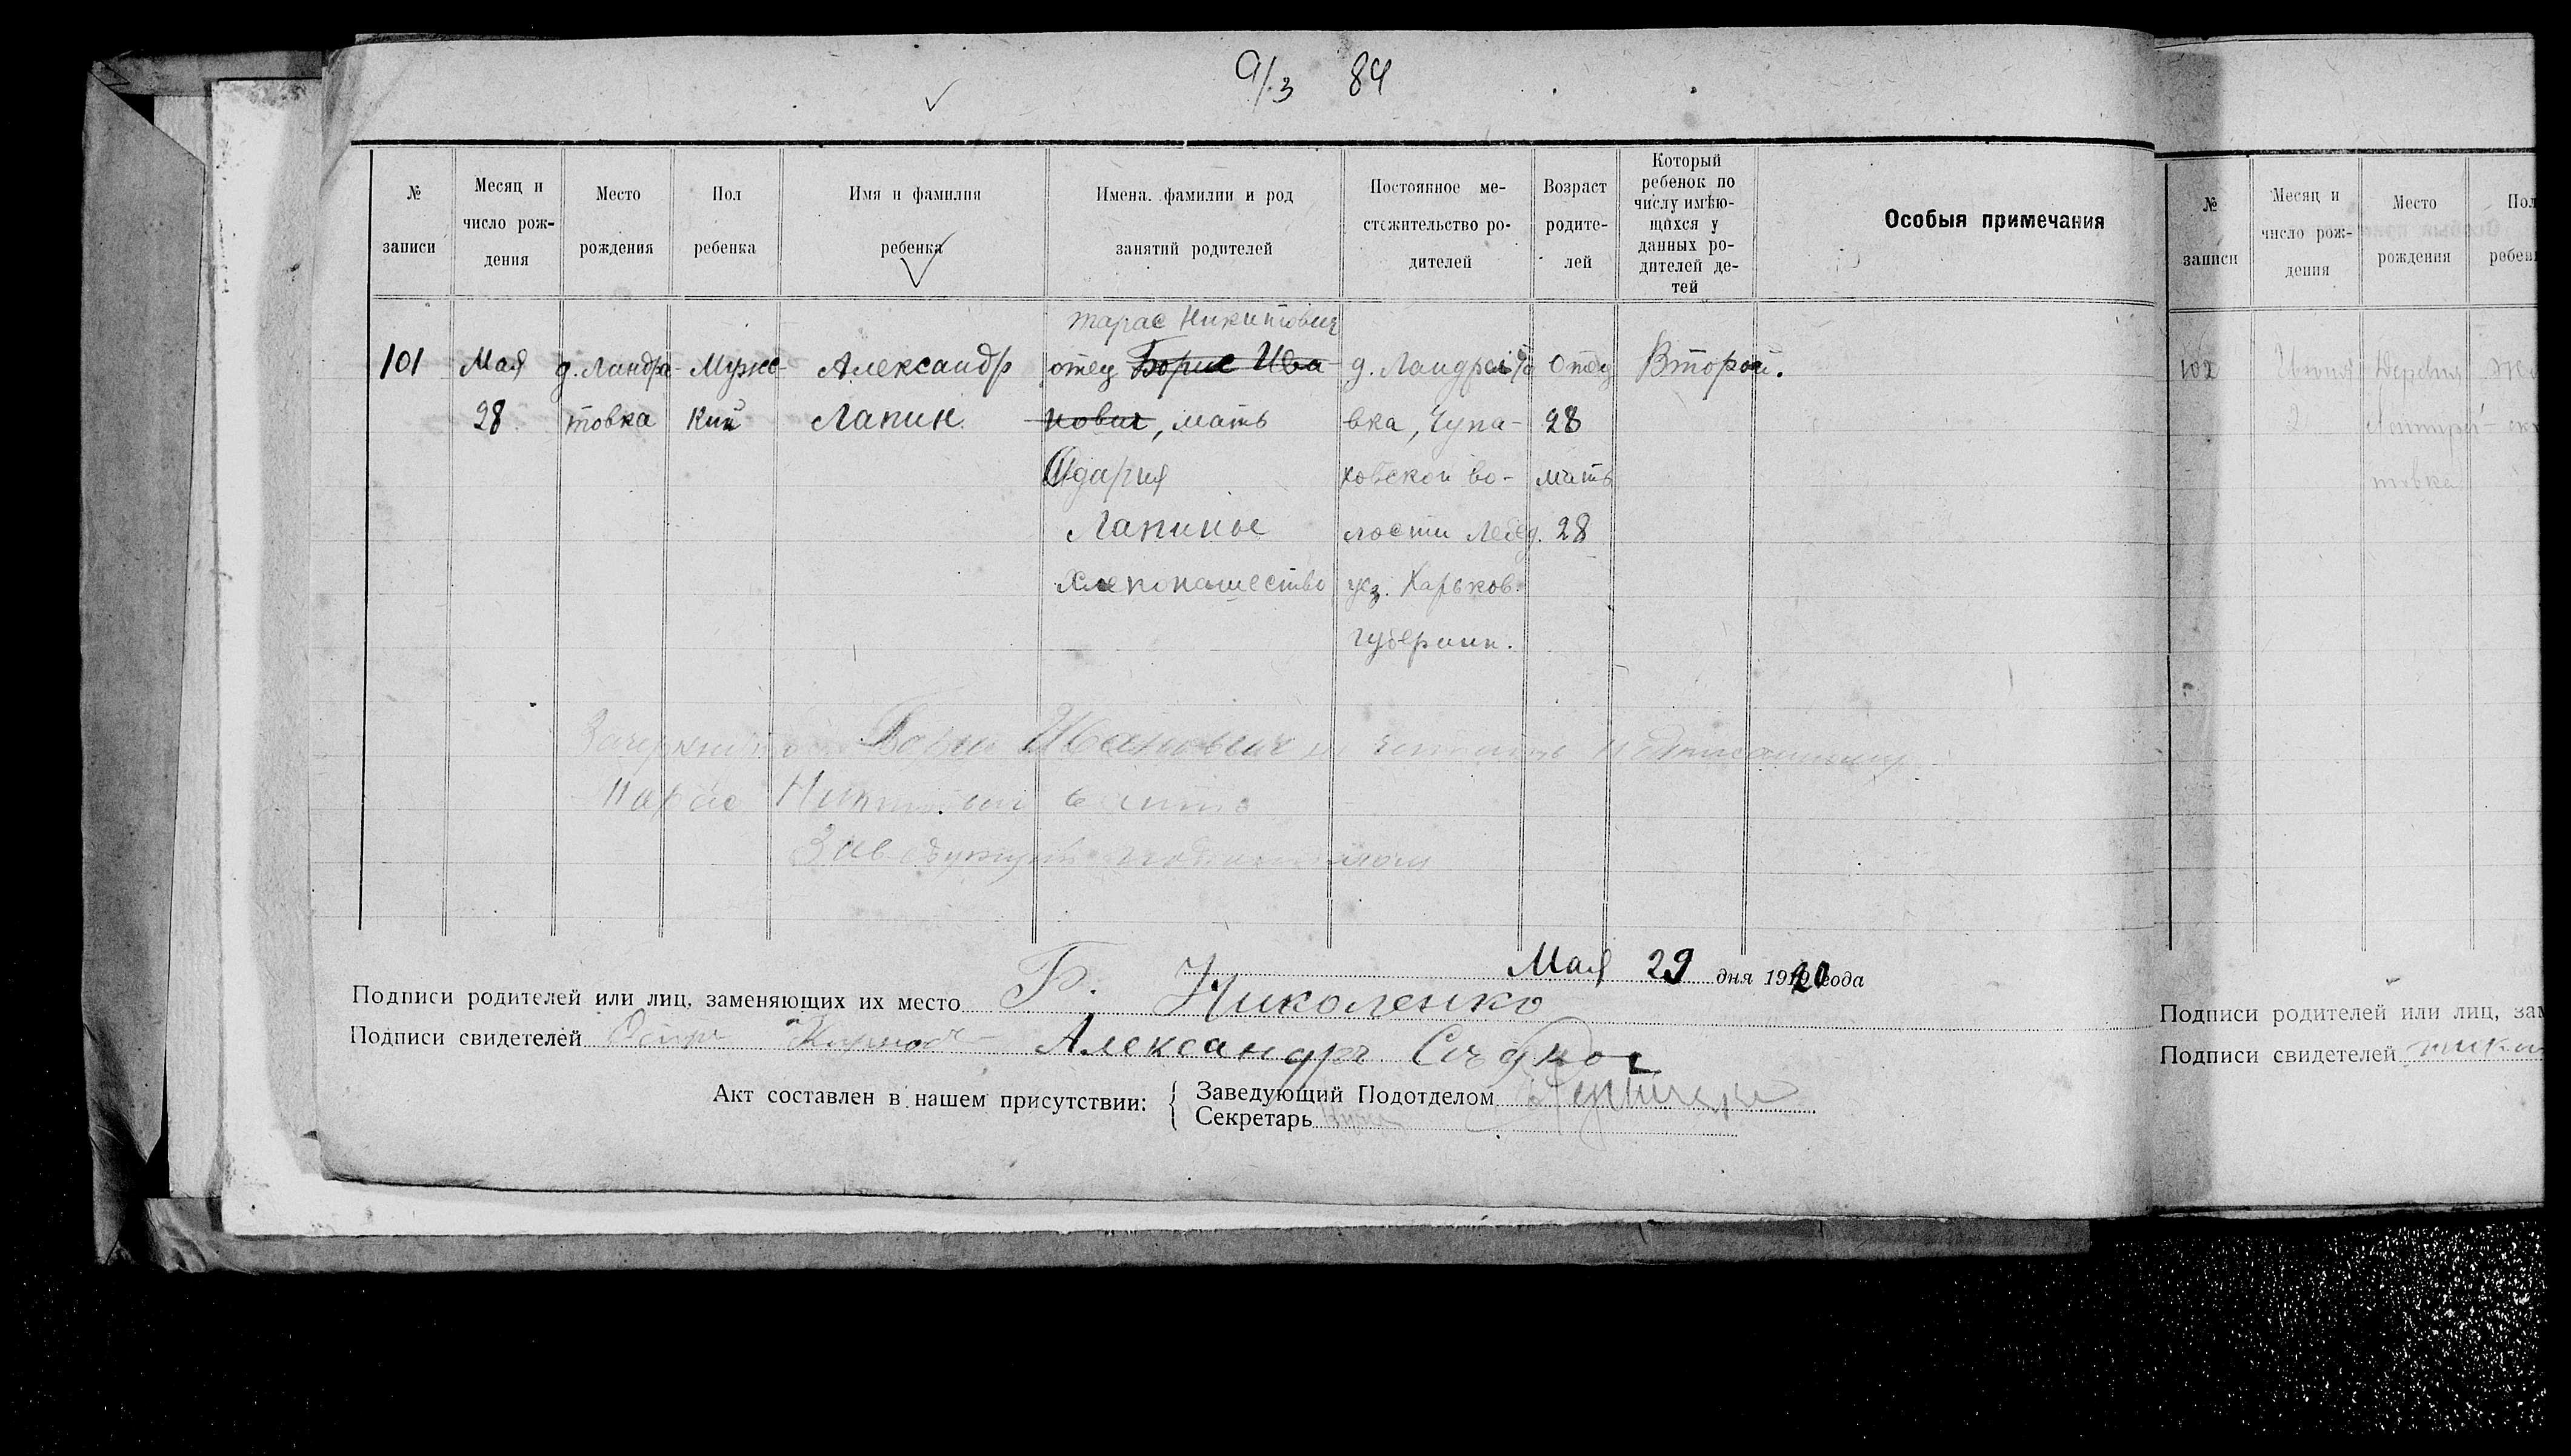 9/3 84
№ записи
Месяц и число рождения
Место рождения
Пол ребенка
Имя и фамилия ребенка
Имена. фамилии и род занятий родителей
Постоянное местожительство родителей
Возраст родителей
Который ребенок по числу имѣющихся у данных родителей детей
Особыя примечания
Тарас Никитович
101 Мая д. Ландра- Мужс- Александр отец Борис Ива д. Ландрато Отец Второй.
28 товка кий Лапин нович, мать вка, Чупа- 28
Одария ховской во- мать
Лапины лости Лебед. 28
Хлепопашество уез. Харьков.
губернии.
Борис Иванович
Тарас Никитович
Заведующий
Мая 29 дня 1920 года
Подписи родителей или лиц, заменяющих их место Б. Николенко
Подписи свидетелей Александръ
Акт составлен в нашем присутствии:
Заведующий Подотделом
Секретарь
№ записи
Месяц и число рождения
Место рождения
Пол ребен
102 Июня Деревня
2
товка
Подписи родителей или лиц, зам
Подписи свидетелей